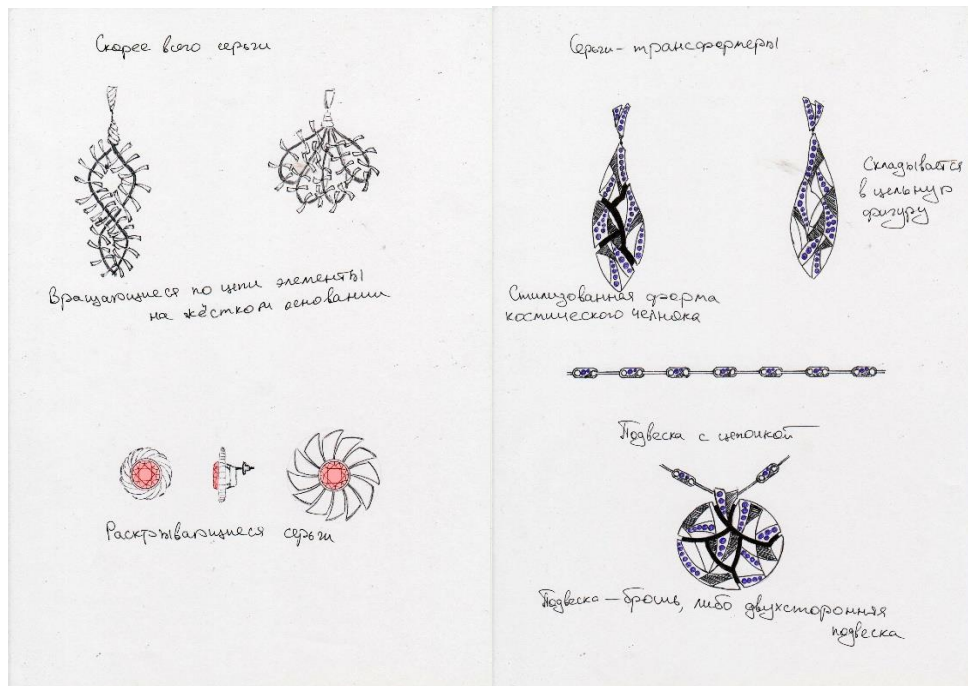 Скорее всего серьги
Вращающиеся по цепи элементы
на жёстком основании
Раскрывающиеся серьги
Серьги-трансформеры
Складывается
в цельную
фигуру
Стилизованная форма
космического челнока
Подвеска с цепочкой
Подвеска — брошь, либо двухсторонняя
подвеска